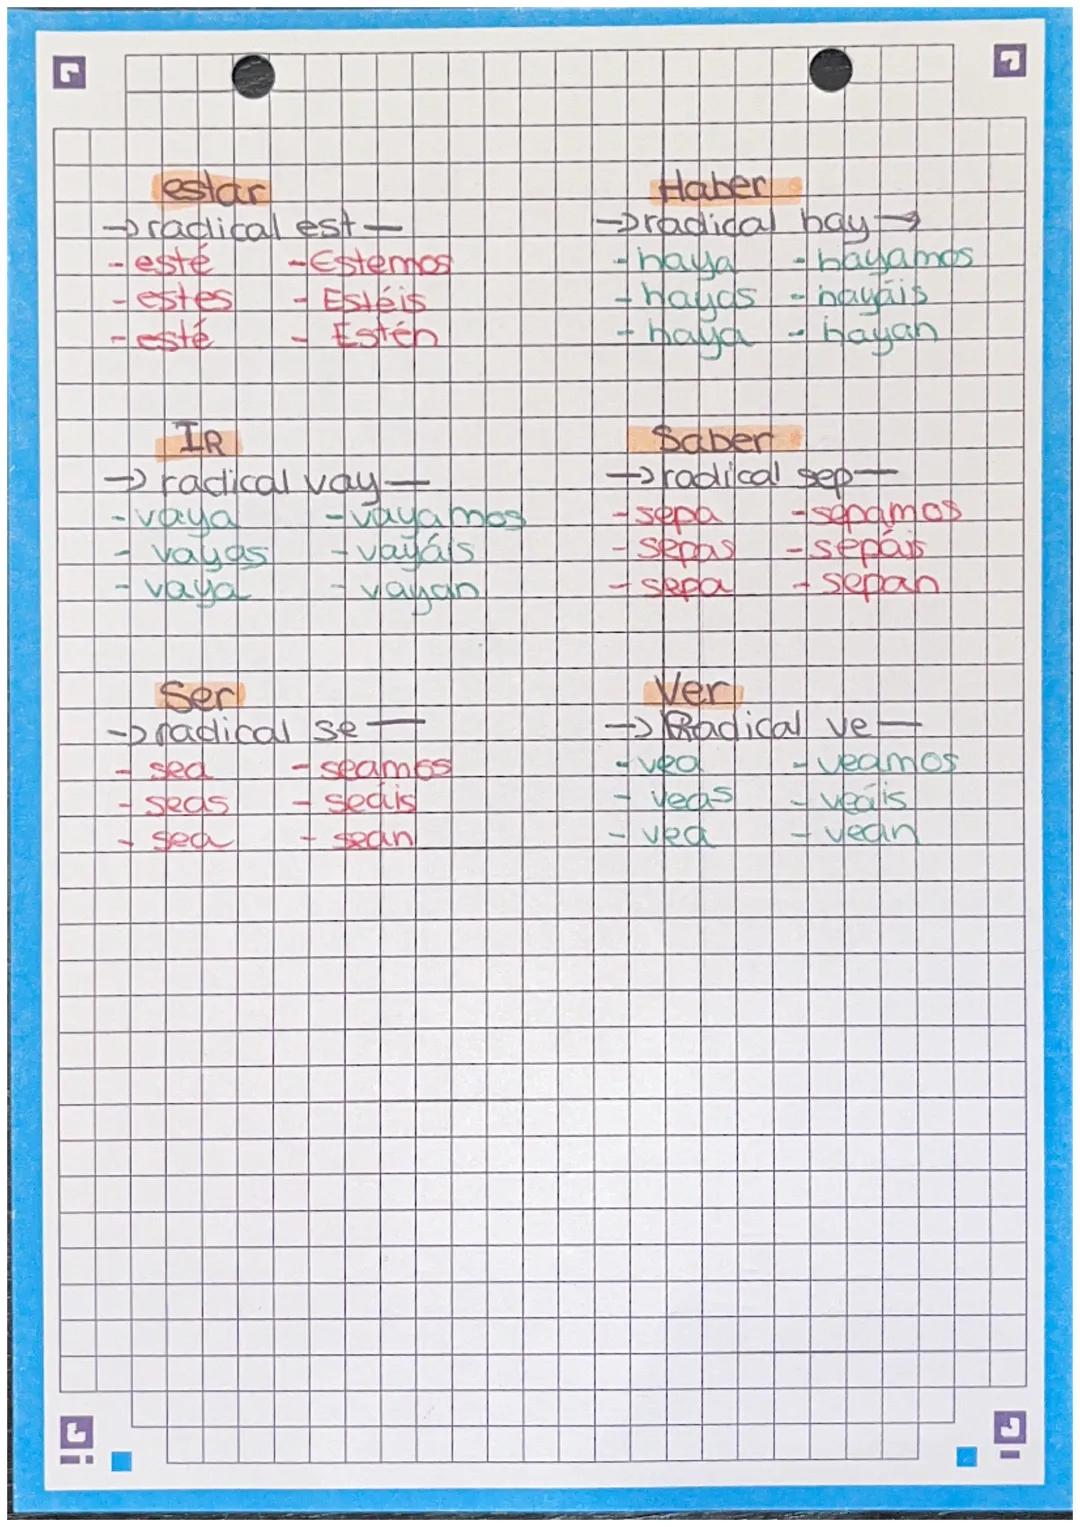 estar
→ radical est—
- esté - Estemos
- estes - Estéis
- esté - Estén
Haber
→ radical hay→
- haya - hayamos
- hayas - hayáis
- haya - hayan
IR
→ radical vay—
- vaya - vayamos
- vayas - vayáis
- vaya - vayan
Saber
→ radical sep—
- sepa - sepamos
- sepas - sepáis
- sepa - sepan
Ser
→ radical se—
- sea - seamos
- seas - seáis
- sea - sean
Ver
→ Radical ve—
- vea - veamos
- veas - veáis
- vea - vean